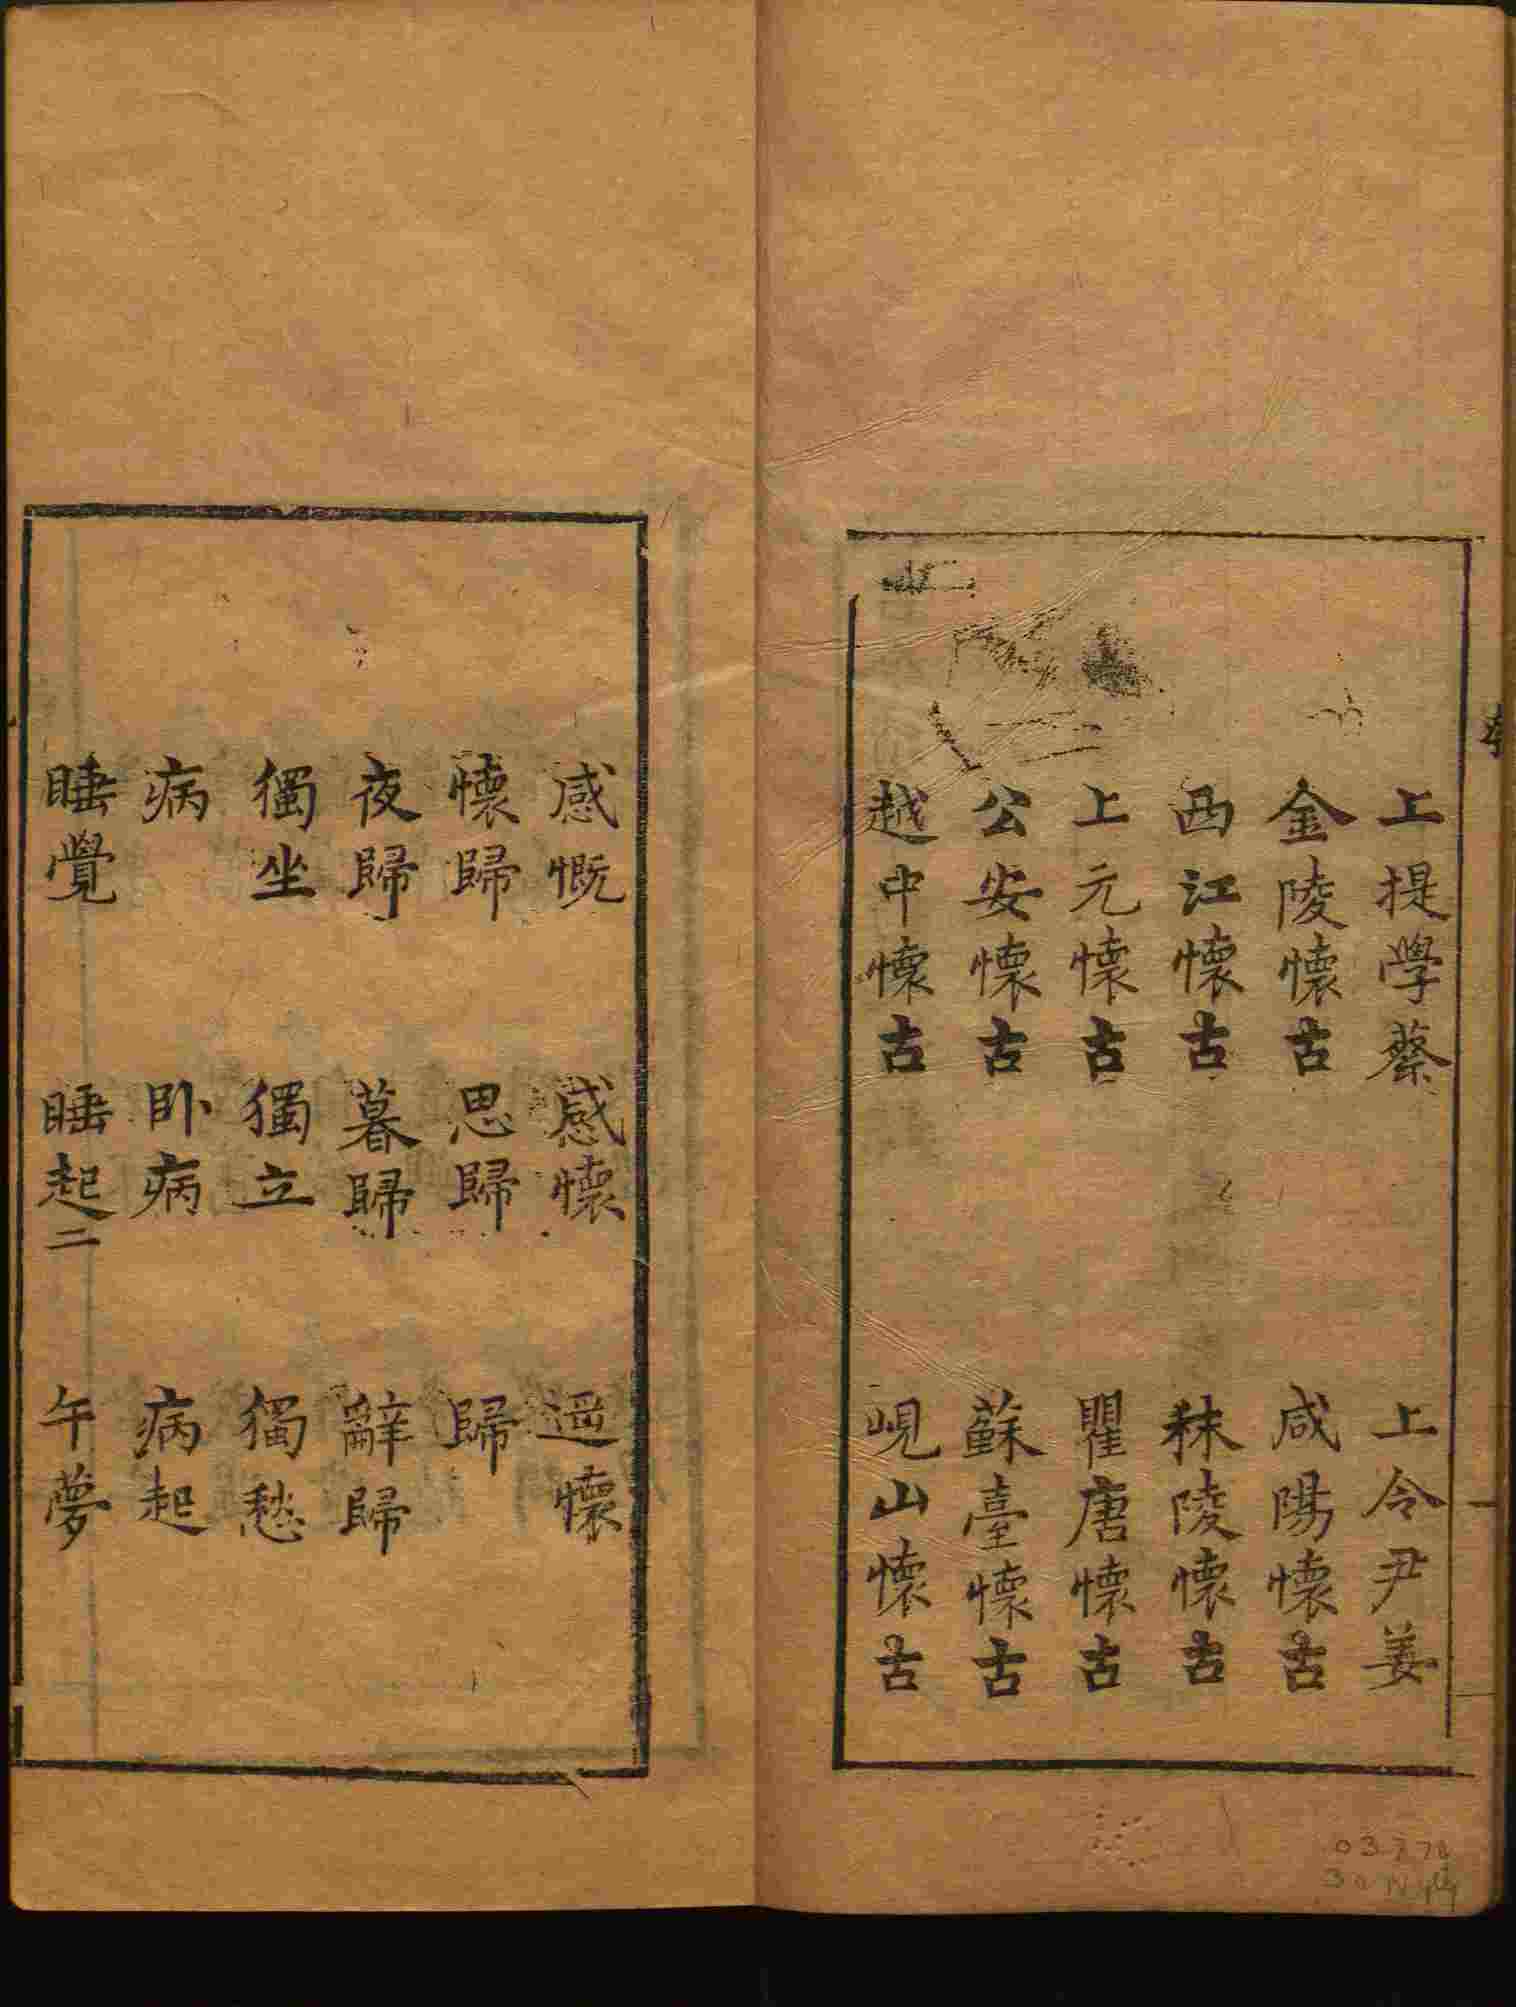 上提學蔡 上令尹姜
金陵懷古 咸陽懷古
西江懷古 秣陵懷古
上元懷古 瞿唐懷古
公安懷古 蘇臺懷古
越中懷古 峴山懷古
感慨 感懷 遣懷
懷歸 思歸 歸
夜歸 暮歸 辭歸
獨坐 獨立 獨愁
病 卧病 病起
睡覺 睡起二 午夢